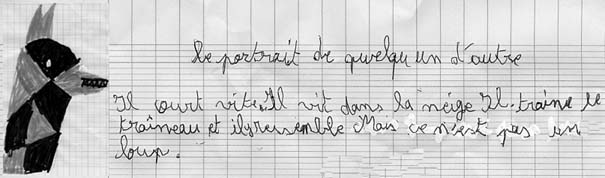 le portrait de quelqu un d'autre
Il court vite. Il vit dans la neige Il traine le
traîneau et il y ressemble Mais ce n'est pas un
loup.